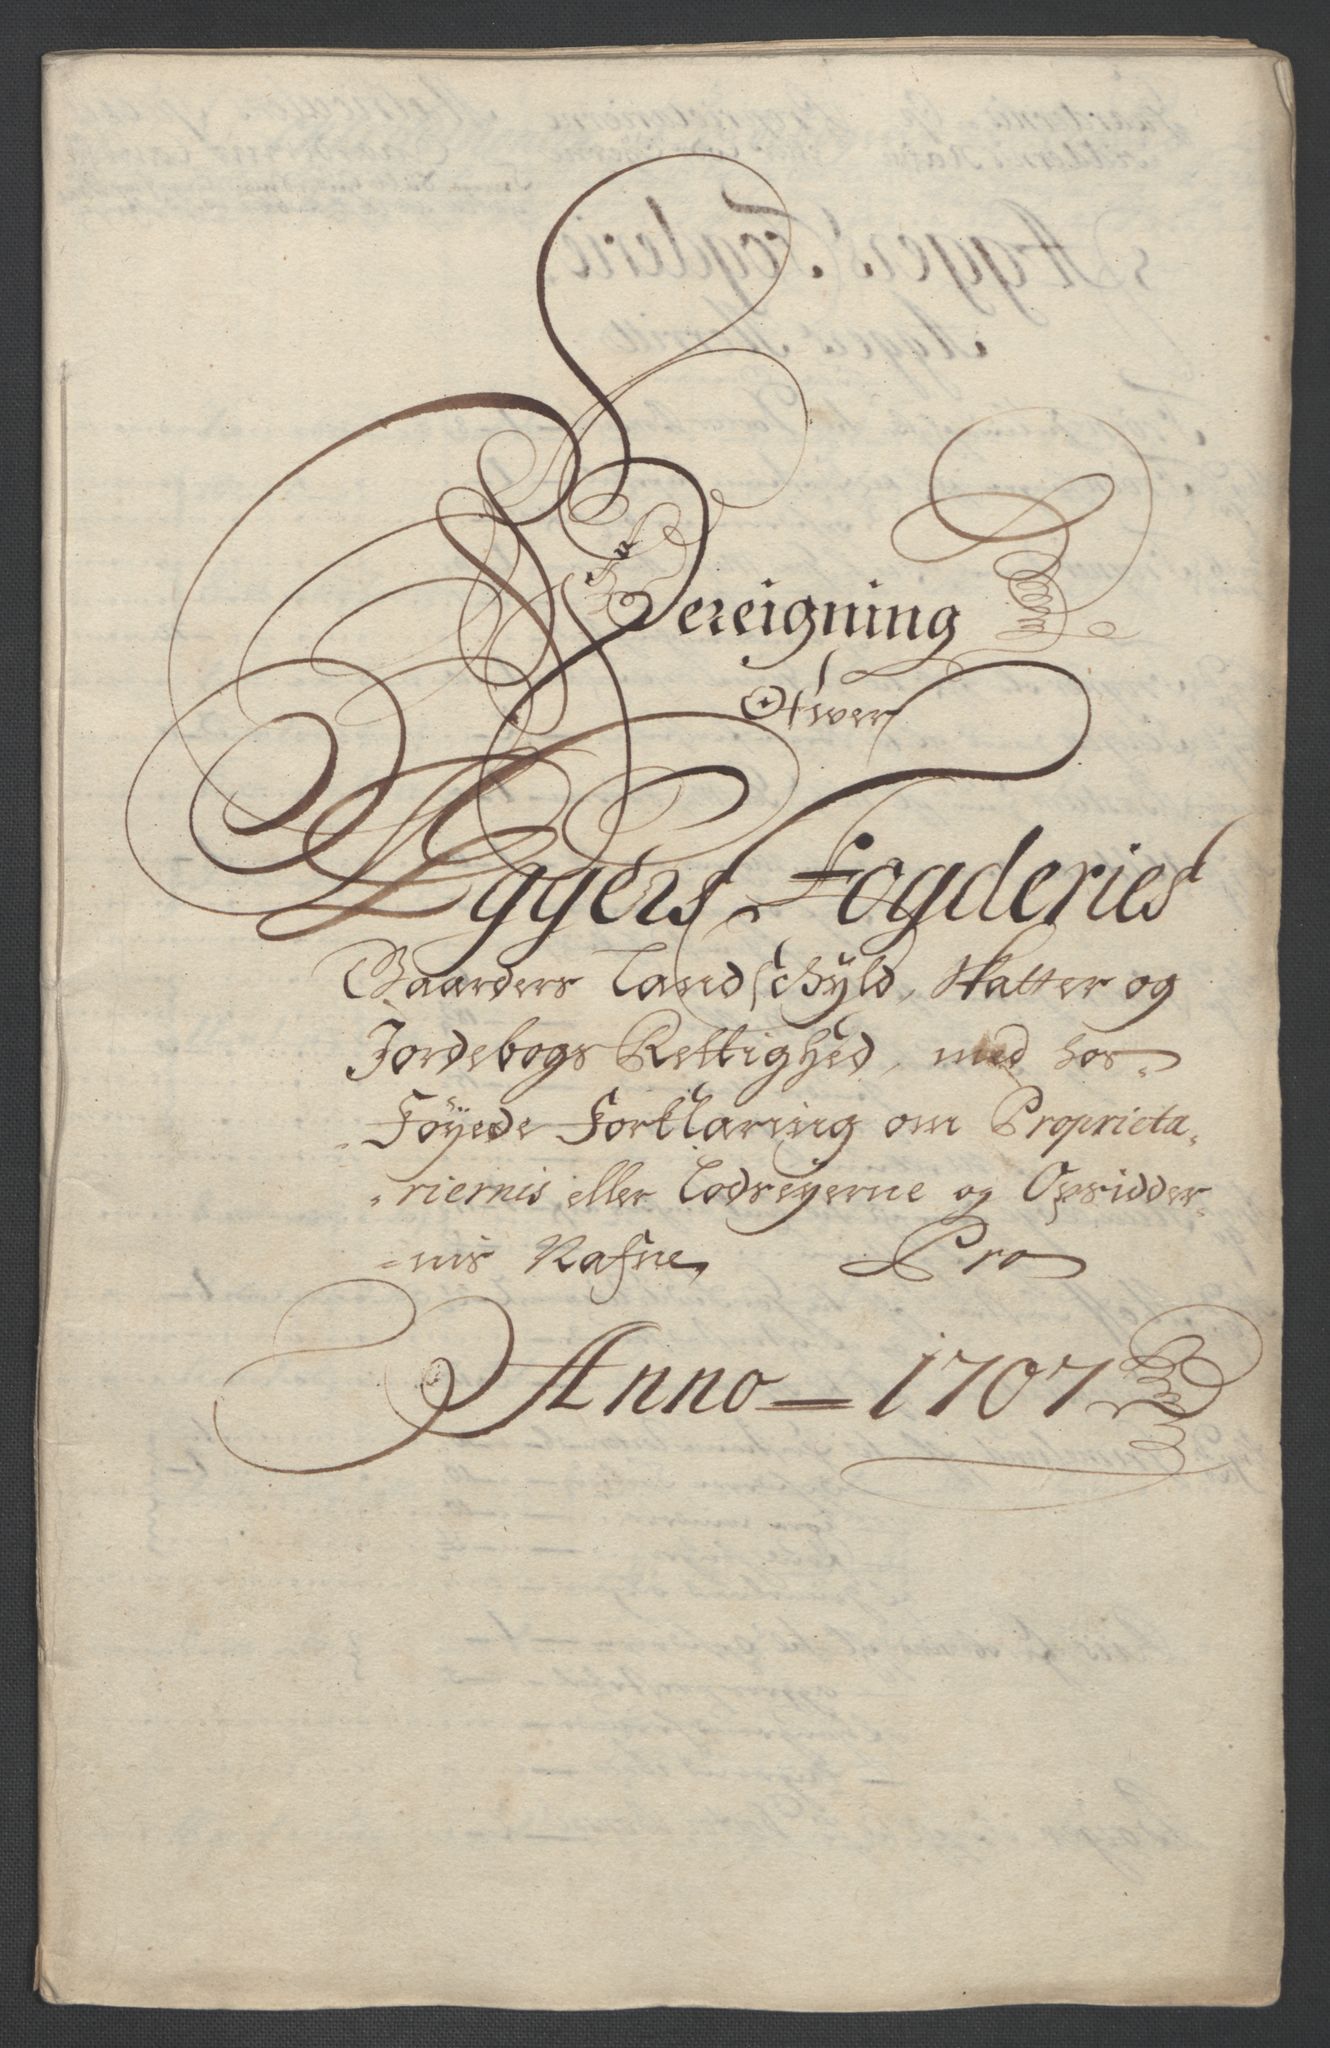 Bereigning
Ofwer
Aggers Fogderies
Gaarders Landschyld, Skatter og
Jordebogs Rettighed, med hos-
Føyede Forklaring om Proprieta-
-riernis eller Lodseyerne og Opsidder-
-nis Nafne, Pro
Anno - 1707